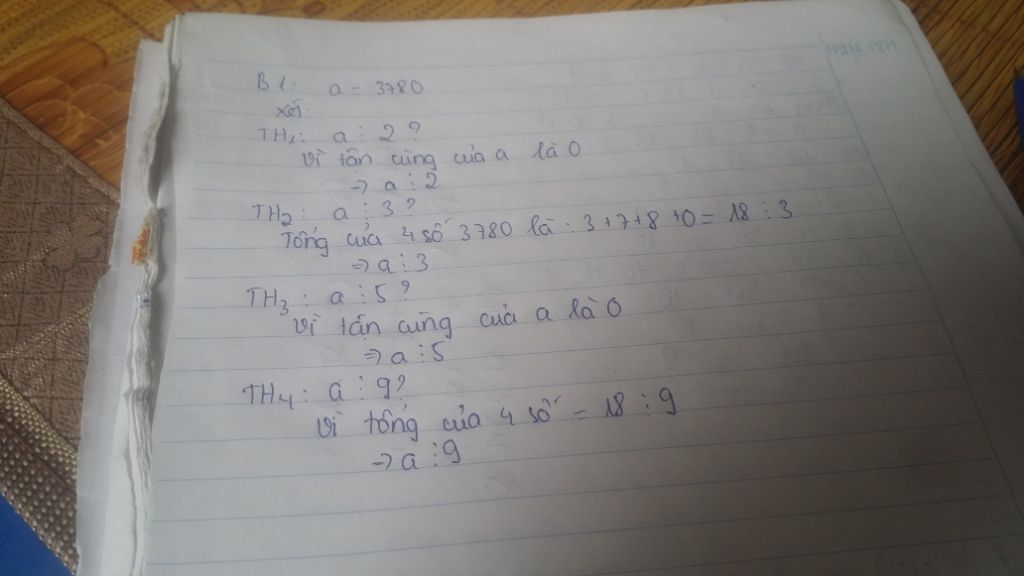 B1: a = 3780
Xét:
TH1: a ⋮ 2 ?
Vì tận cùng của a là 0
=> a ⋮ 2
TH2: a ⋮ 3 ?
Tổng của 4 số 3780 là : 3+7+8+0 = 18 ⋮ 3
=> a ⋮ 3
TH3 : a ⋮ 5 ?
Vì tận cùng của a là 0
=> a ⋮ 5
TH4 : a ⋮ 9 ?
Vì tổng của 4 số = 18 ⋮ 9
=> a ⋮ 9